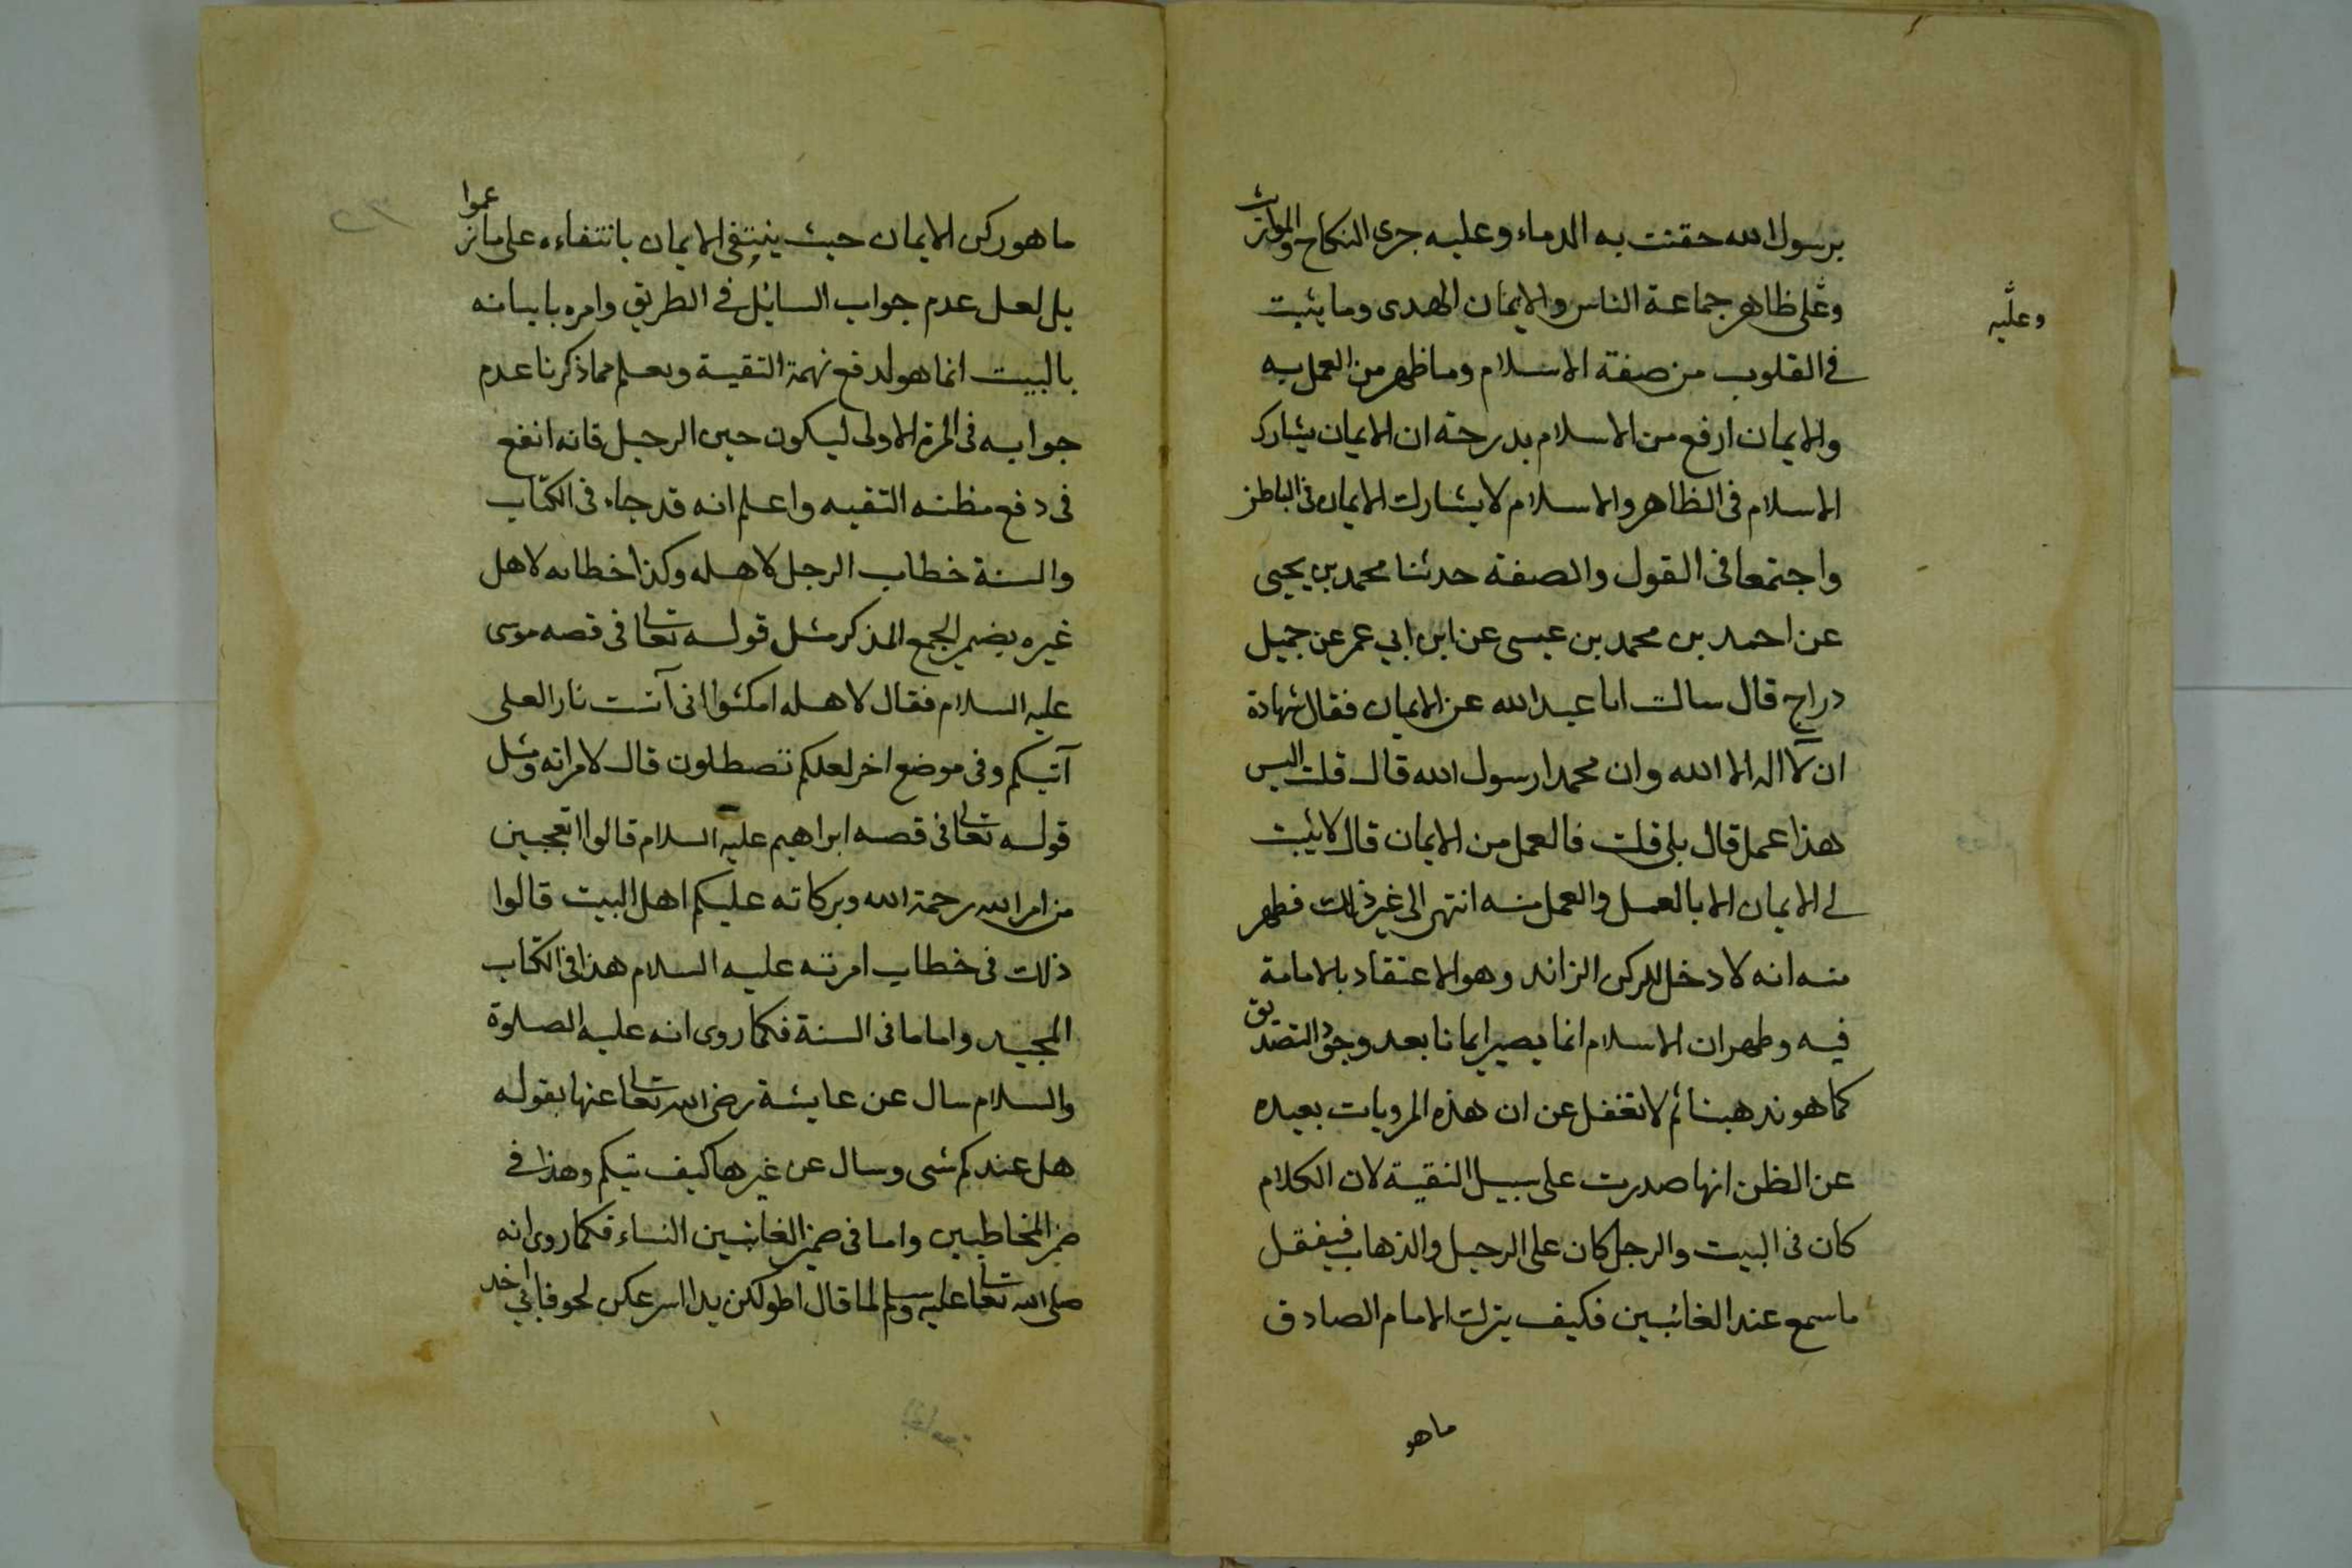 برسول الله حقنت به الدماء وعليه جرى النكاح والمواريث
وعلى ظاهر جماعة الناس والايمان الهدى وما يثبت
وعليه
فى القلوب من صفة الاسلام وما ظهر من العمل به
والايمان ارفع من الاسلام بدرجة ان الايمان يشارك
الاسلام فى الظاهر والاسلام لا يشارك الايمان فى الباطن
واجتمعا فى القول والصفة حدثنا محمد بن يحيى
عن احمد بن محمد بن عيسى عن ابن ابي عمر عن جميل
دراج قال سالت ابا عبد الله عن الايمان فقال شهادة
ان لا اله الا الله وان محمدا رسول الله قال قلت اليس
هذا عمل قال بلى قلت فالعمل من الايمان قال لا يثبت
له الايمان الا بالعمل والعمل منه انتهى الى غير ذلك فظهر
منه انه لا دخل للركن الزائد وهو الاعتقاد بالامامة
فيه وظهر ان الاسلام انما يصير ايمانا بعد وجود التصديق
كما هو مذهبنا ثم لا تغفل عن ان هذه المرويات بعيده
عن الظن انها صدرت على سبيل التقية لان الكلام
كان فى البيت والرجل كان على الرحيل والذهاب فينقل
ما سمع عند الغائبين فكيف يترك الامام الصادق
ما هو
ما هو ركن الايمان حيث ينتفى الايمان بانتفاءه على ما زعموا
بل لعل عدم جواب السائل فى الطريق وامره باتيانه
بالبيت انما هو لدفع تهمة التقية وبعلم مما ذكرنا عدم
جوابه فى المرة الاولى ليكون حين الرحيل فانه انفع
فى دفع مظنه التقيه واعلم انه قد جاء فى الكتاب
والسنة خطاب الرجل لاهله وكذا خطابه لاهل
غيره بضمير الجمع المذكر مثل قوله تعالى فى قصه موسى
عليه السلام فقال لاهله امكثوا انى آنست نارا لعلى
آتيكم وفى موضع اخر لعلكم تصطلون قال لامراته ومثل
قوله تعالى فى قصه ابراهيم عليه السلام قالوا اتعجبين
من امر الله رحمة الله وبركاته عليكم اهل البيت قالوا
ذلك فى خطاب امرته عليه السلام هذا فى الكتاب
المجيد واما ما فى السنة فكما روى انه عليه الصلوة
والسلام سال عن عايشة رضى الله تعالى عنها بقوله
هل عندكم شى وسال عن غيرها كيف تيكم وهذا فى
ضمير المخاطبين واما فى ضمير الغائبين النساء فكما روى انه
صلى الله تعالى عليه وسلم لما قال اطولكن يدا اسرعكن لحوقا بي اخذ